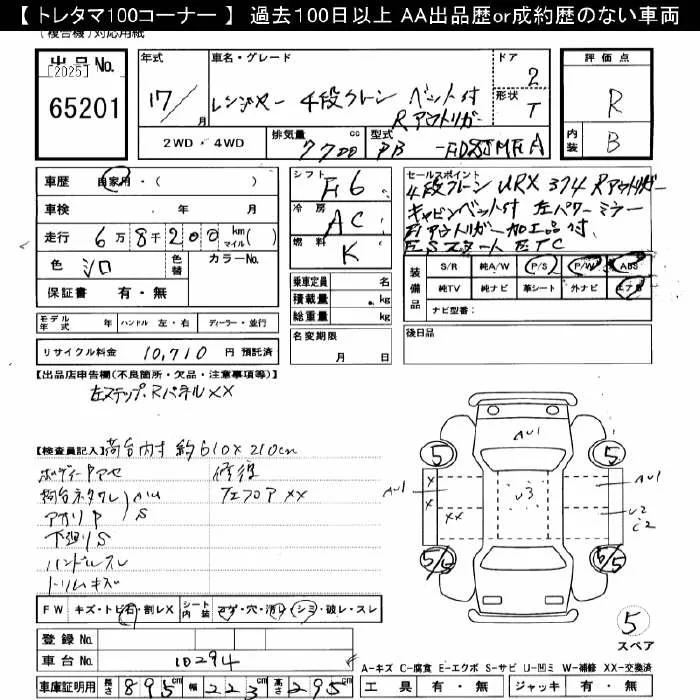 【 トレタマ100コーナー 】 過去100日以上 AA出品歴or成約歴のない車両
(複合機)対応用紙
出品No. [2025] 65201
年式 17/ 月
車名・グレード レンジャー 4段クレーン ベット付 Rアウトリガー
ドア 2
形状 T
評価点 R
内装 B
2WD・4WD 排気量 7700 cc 型式 PB -
車歴 自家用・( )
車検 年 月
走行 6万8千200 km マイル( )
色 シロ 色替 カラーNo.
保証書 有・無
シフト F6
冷房 AC
燃料 K
乗車定員 名
積載量 . kg
総重量 kg
セールスポイント
4段クレーン URX 374 Rアウトリガー
キャビンベット付 左パワーミラー
アウトリガー加工品付、
ESスタート ETC
装備品 S/R 純A/W P/S P/W ABS
純TV 純ナビ 革シート 外ナビ エアB
ナビ型番:
モデル年式 年 ハンドル 左・右 ディーラー・並行
リサイクル料金 10,710 円 預託済
名変期限 月 日
後日品
【出品店申告欄(不良箇所・欠品・注意事項等)】
左ステップ・Rパネル XX
【検査員記入】荷台内寸 約610×210cm
修復
XX
アオリP S
下廻りS
ハンドルスレ
トリムキズ
FW キズ・トビ石・割レX シート内装 コゲ・穴・シミ・破レ・スレ
登録No.
車台No. 10294
車庫証明用 長さ 895 cm 幅 223 cm 高さ 295 cm
AU1
5 5
AU1 X XX U3 AU1
X U2
5/5 6/5
5
スペア
A-キズ C-腐食 E-エクボ S-サビ U-凹ミ W-補修 XX-交換済
工具 有・無 ジャッキ 有・無